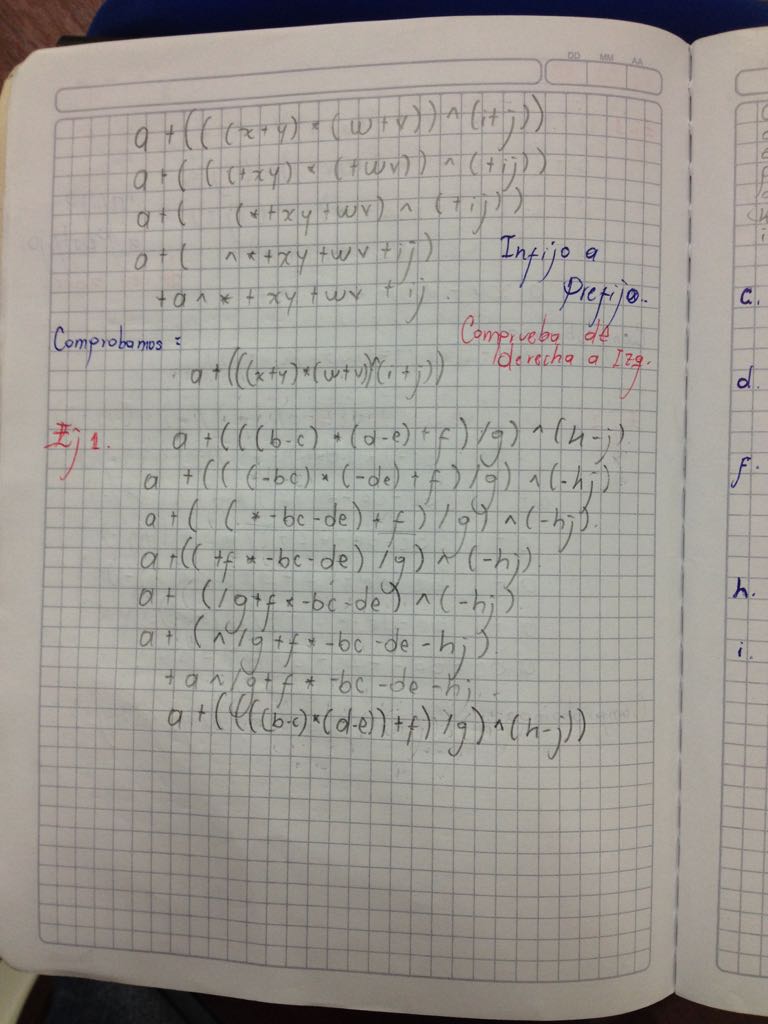 DD MM AA
a + (((x+y) * (w+v)) ^ (i+j))
a + (((+xy) * (+wv)) ^ (+ij))
a + ( (*+xy+wv) ^ (+ij))
a + ( ^*+xy+wv+ij)
+a^*+xy+wv+ij.
Infijo a
Prefijo.
Comprobamos:
Comprueba de
derecha a Izq.
a + (((x+y)*(w+v))^(i+j))
Ej 1. a + (((b-c) * (d-e) + f) /g) ^ (h-j)
a + (((-bc) * (-de) + f) /g) ^ (-hj)
a + ( ( * -bc-de) + f ) /g) ^ (-hj)
a + (( +f * -bc-de) /g) ^ (-hj)
a + (/g+f * -bc-de) ^ (-hj)
a + (^/g+f * -bc-de-hj)
+a^/g+f * -bc-de-hj.
a + ((((b-c)*(d-e))+f) /g) ^ (h-j))
c.
d.
f.
h.
i.